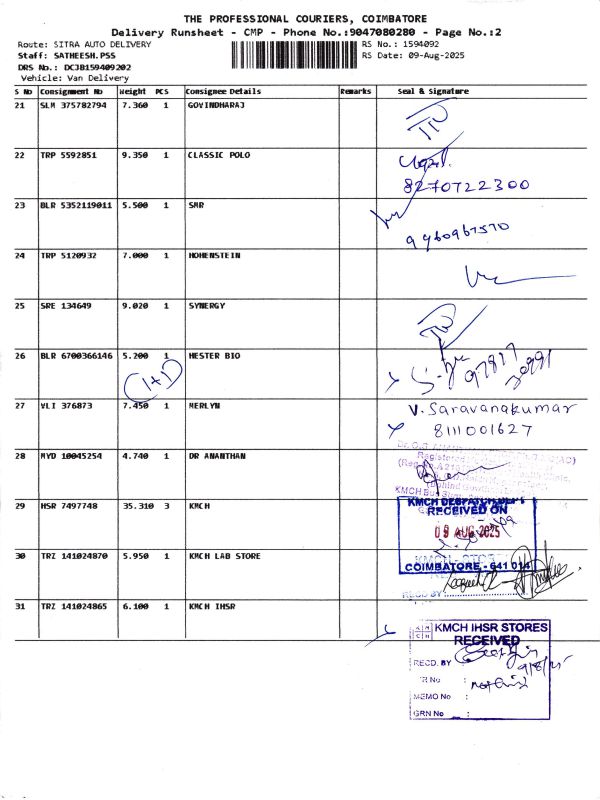 THE PROFESSIONAL COURIERS, COIMBATORE
Delivery Runsheet - CMP - Phone No.:9047080280 - Page No.:2
Route: SITRA AUTO DELIVERY RS No.: 1594092
Staff: SATHEESH.PSS RS Date: 09-Aug-2025
DRS No.: DCJB159409202
Vehicle: Van Delivery
S No Consignment No Weight PCS Consignee Details Remarks Seal & Signature
21 SLM 375782794 7.360 1 GOVINDHARAJ
22 TRP 5592851 9.350 1 CLASSIC POLO
8270722300
23 BLR 5352119011 5.500 1 SMR
24 TRP 5120932 7.000 1 HOHENSTEIN
25 SRE 134649 9.020 1 SYNERGY
26 BLR 6700366146 5.200 1 HESTER BIO
(1+1)
27 VLI 376873 7.450 1 MERLYN V. Saravanakumar
8111001627
28 MYD 10045254 4.740 1 DR ANANTHAN
29 HSR 7497748 35.310 3 KMCH
KMCH DESPATCH DEPT
RECEIVED ON
09 AUG 2025
30 TRZ 141024870 5.950 1 KMCH LAB STORE
COIMBATORE - 641 014
RECD BY
31 TRZ 141024865 6.100 1 KMCH IHSR
KMCH IHSR STORES
RECEIVED
RECD. BY
9/8/25
MEMO No :
GRN No :